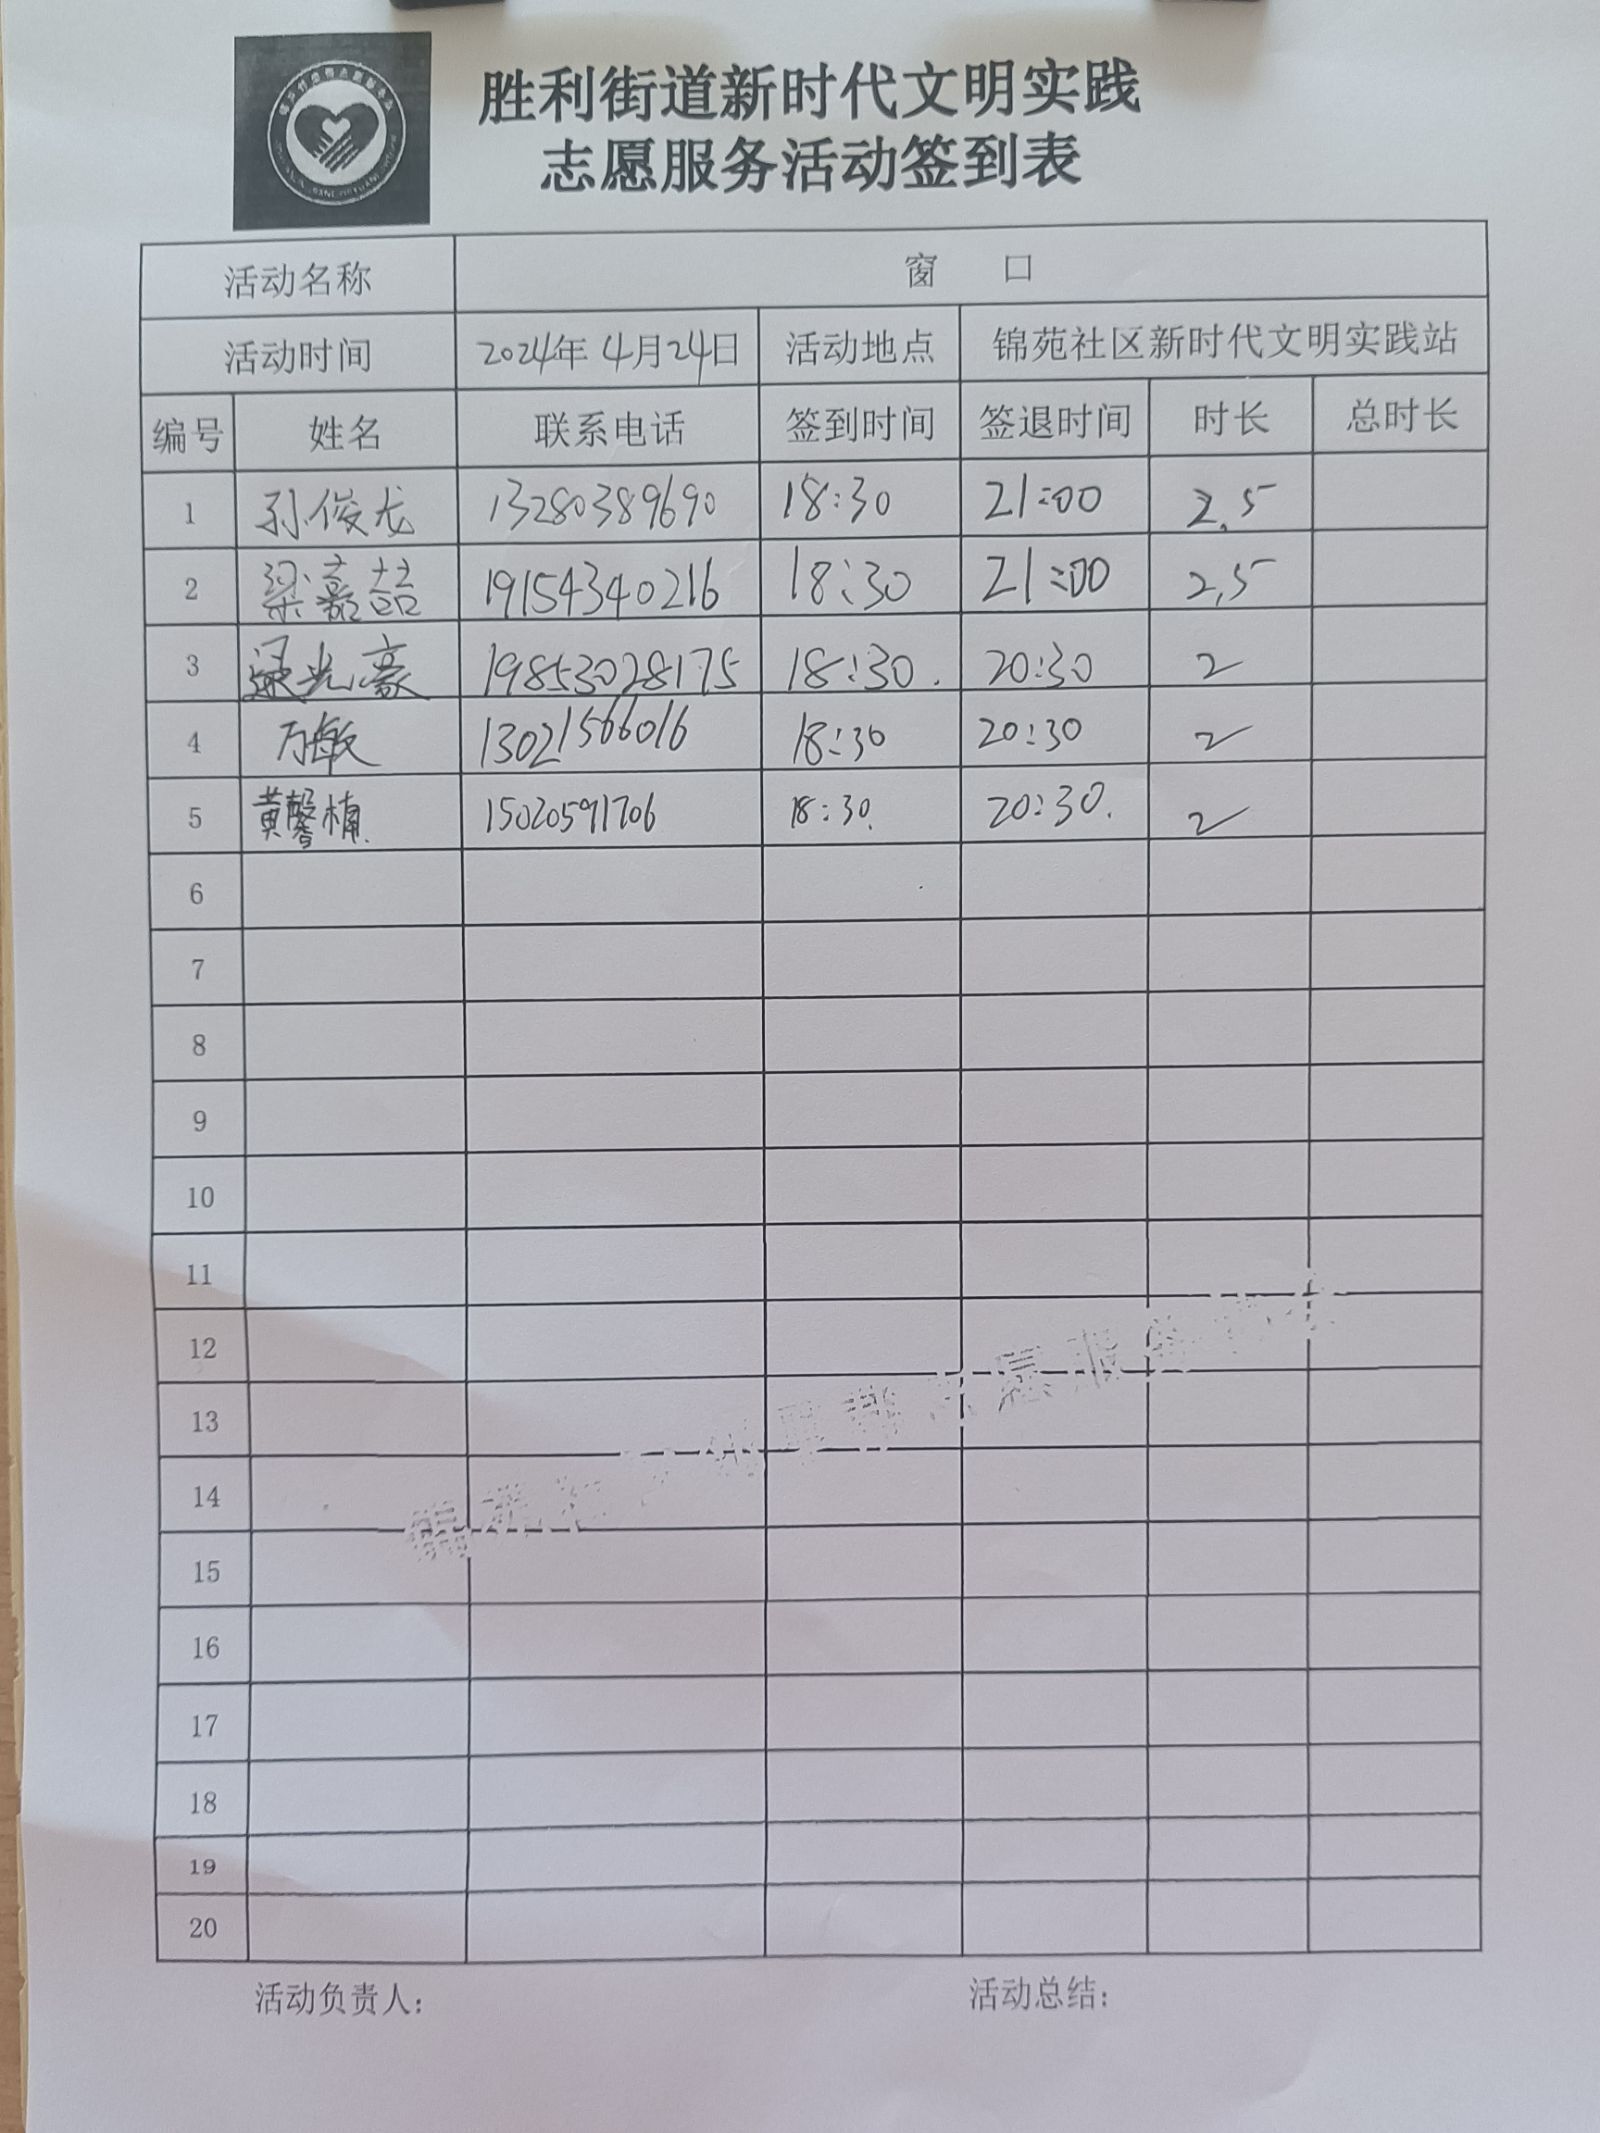 胜利街道新时代文明实践
志愿服务活动签到表
活动名称 窗 口
活动时间 2024年 4月24日 活动地点 锦苑社区新时代文明实践站
编号 姓名 联系电话 签到时间 签退时间 时长 总时长
1 孙俊龙 13280389690 18:30 21:00 2.5
2 梁嘉喆 19154340216 18:30 21:00 2.5
3 光豪 19853028175 18:30. 20:30 2
4 万敏 13021566016 18:30 20:30 2
5 黄馨楠. 15020591706 18:30. 20:30. 2
6
7
8
9
10
11
12
13
14
15
16
17
18
19
20
活动负责人: 活动总结: